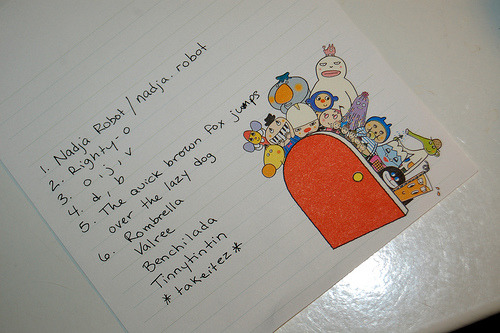 1. Nadja Robot / nadja.robot
2. Righty-o
3. o, j, v
4. d, b
5. The quick brown fox jumps
over the lazy dog
6. Rombrella
Valree
Benchilada
Tinnytintin
*takeitez*